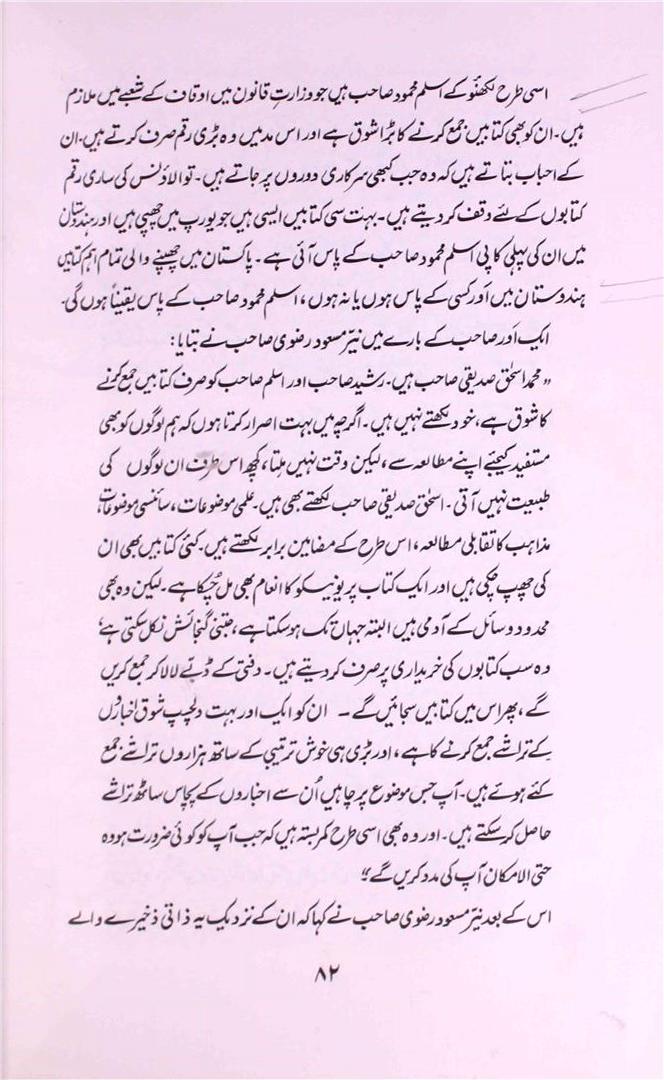 اسی طرح لکھنؤ کے اسلم محمود صاحب ہیں جو وزارتِ قانون میں اوقاف کے شعبے میں ملازم
ہیں۔ ان کو بھی کتابیں جمع کرنے کا بڑا شوق ہے اور اس مد میں وہ بڑی رقم صرف کرتے ہیں۔ ان
کے احباب بتاتے ہیں کہ وہ جب کبھی سرکاری دوروں پر جاتے ہیں۔ تو الاؤنس کی ساری رقم
کتابوں کے لئے وقف کر دیتے ہیں۔ بہت سی کتابیں ایسی ہیں جو یورپ میں چھپی ہیں اور ہندوستان
میں ان کی پہلی کاپی اسلم محمود صاحب کے پاس آئی ہے۔ پاکستان میں چھپنے والی تمام اہم کتابیں
ہندوستان میں اَور کسی کے پاس ہوں یا نہ ہوں، اسلم محمود صاحب کے پاس یقیناً ہوں گی۔
ایک اَور صاحب کے بارے میں نیّر مسعود رضوی صاحب نے بتایا:
"محمد اسحٰق صدیقی صاحب ہیں۔ رشید صاحب اور اسلم صاحب کو صرف کتابیں جمع کرنے
کا شوق ہے، خود لکھتے نہیں ہیں۔ اگرچہ میں بہت اصرار کرتا ہوں کہ ہم لوگوں کو بھی
مستفید کیجئے اپنے مطالعہ سے، لیکن وقت نہیں ملتا، کچھ اس طرف ان لوگوں کی
طبیعت نہیں آتی۔ اسحٰق صدیقی صاحب لکھتے بھی ہیں۔ علمی موضوعات، سائنسی موضوعات
مذاہب کا تقابلی مطالعہ، اس طرح کے مضامین برابر لکھتے ہیں۔ کئی کتابیں بھی ان
کی چھپ چکی ہیں اور ایک کتاب پر یونیسکو کا انعام بھی مل چُکا ہے۔ لیکن وہ بھی
محدود وسائل کے آدمی ہیں البتہ جہاں تک ہو سکتا ہے، جتنی گنجائش نکل سکتی ہے،
وہ سب کتابوں کی خریداری پر صرف کر دیتے ہیں۔ دفتی کے ڈبّے لا لا کر جمع کریں
گے، پھر اس میں کتابیں سجائیں گے – ان کو ایک اور بہت دلچسپ شوق اخباروں
کے تراشے جمع کرنے کا ہے، اور بڑی ہی خوش ترتیبی کے ساتھ ہزاروں تراشے جمع
کئے ہوئے ہیں۔ آپ جس موضوع پر چاہیں اُن سے اخباروں کے پچاس ساٹھ تراشے
حاصل کر سکتے ہیں۔ اور وہ بھی اسی طرح کمر بستہ ہیں کہ جب آپ کو کوئی ضرورت ہو وہ
حتی الامکان آپ کی مدد کریں گے"
اس کے بعد نیّر مسعود رضوی صاحب نے کہا کہ ان کے نزدیک یہ ذاتی ذخیرے والے
۸۲